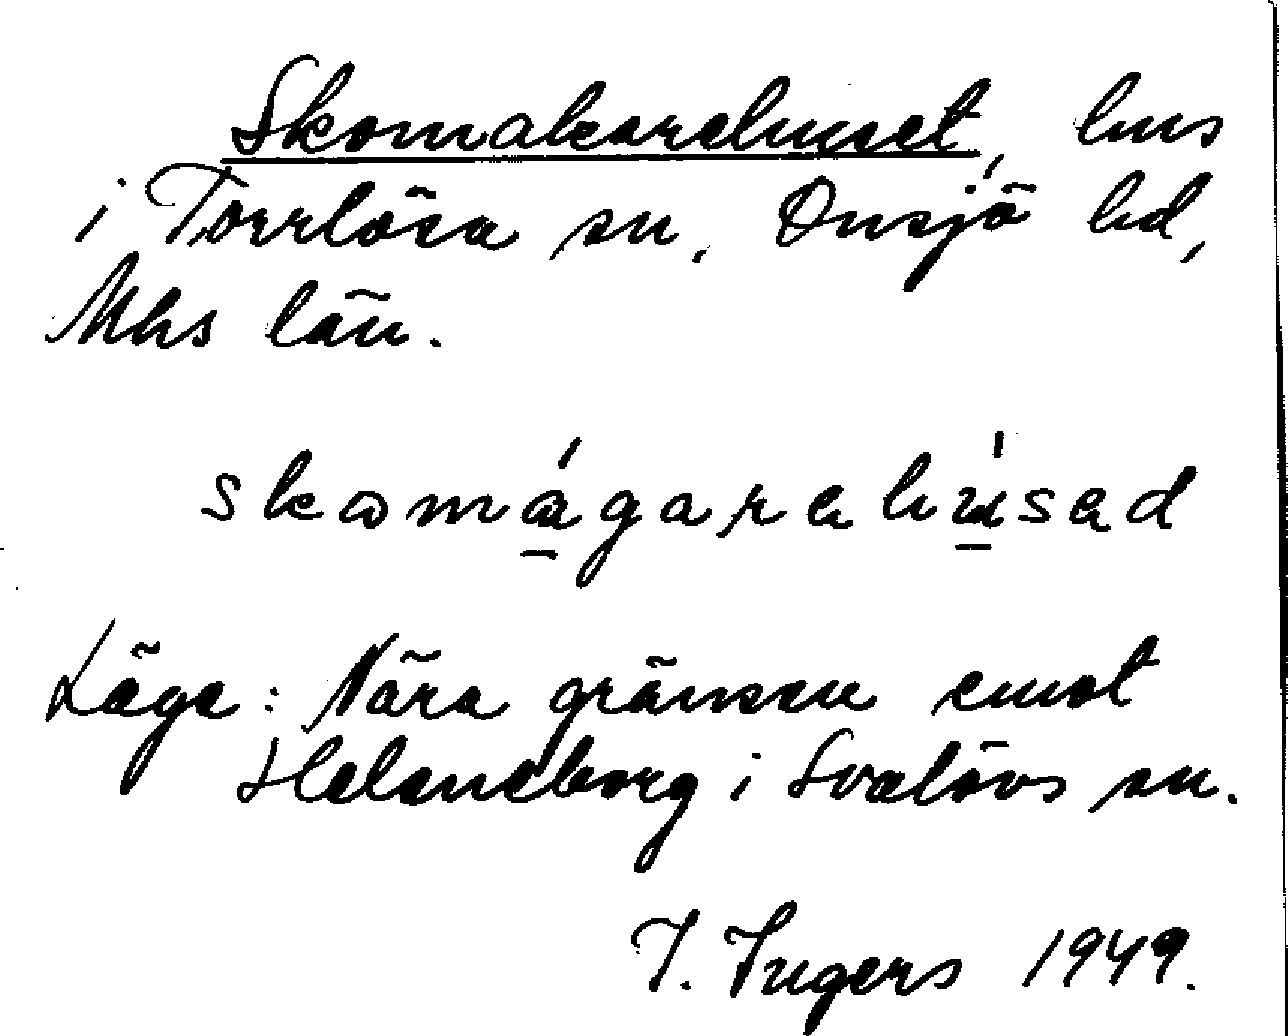 Skomakarehuset, hus
i Torrlösa sn, Onsjö hd,
Mhs län.
skomágarehúsed
Läge: Nära gränsen emot
Heleneborg i Svalövs sn.
I. Ingers 1949.